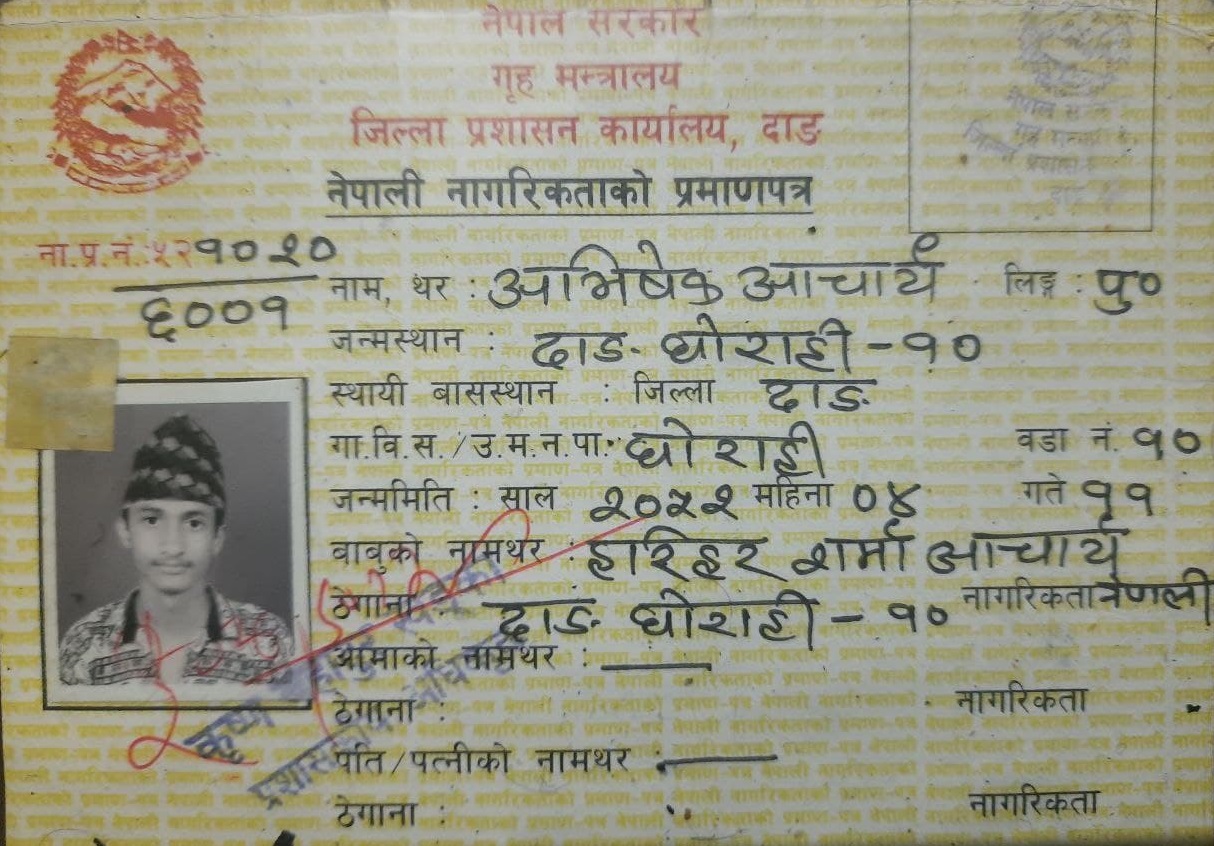 नेपाल सरकार
गृह मन्त्रालय
जिल्ला प्रशासन कार्यालय, दाङ
नेपाली नागरिकताको प्रमाणपत्र
ना.प्र.नं. ५२१०२०
६००१
नाम, थर : अभिषेक आचार्य लिङ्ग : पु०
जन्मस्थान : दाङ-घोराही-१०
स्थायी बासस्थान : जिल्ला दाङ
गा.वि.स./उ.म.न.पा. घोराही वडा नं. १०
जन्ममिति : साल २०५२ महिना ०४ गते ११
बाबुको नामथर : हरिहर शर्मा आचार्य
ठेगाना : दाङ घोराही-१० नागरिकता नेपाली
आमाको नामथर : —
ठेगाना : नागरिकता
कृष्ण बहादुर
पति/पत्नीको नामथर : —
ठेगाना : नागरिकता